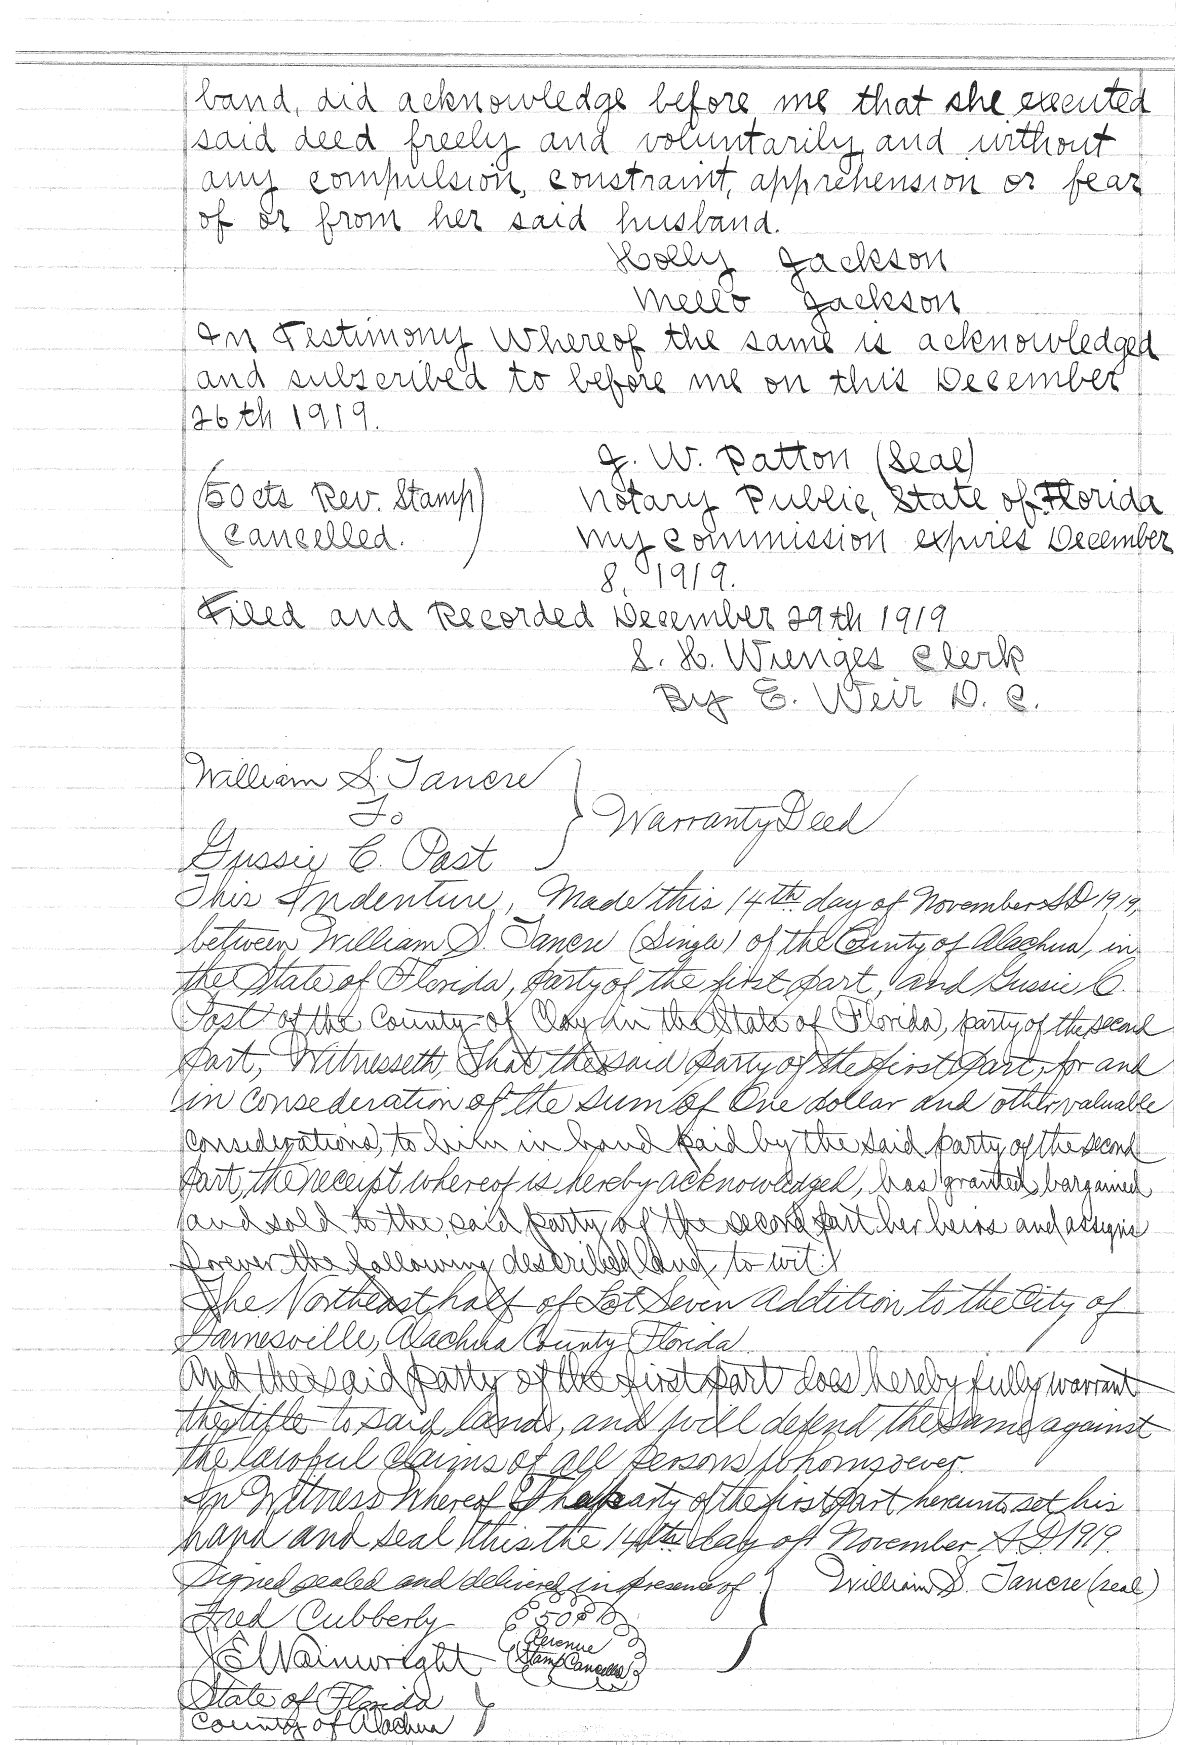 band, did acknowledge before me that she executed
said deed freely and voluntarily and without
any compulsion, constraint, apprehension or fear
of or from her said husband.
Holly Jackson
Mello Jackson
In Testimony Whereof the same is acknowledged
and subscribed to before me on this December
26th 1919.
J. W. Patton (Seal)
(50cts Rev. Stamp Notary Public, State of Florida
Cancelled.) My Commission expires December
8, 1919.
Filed and Recorded December 29th 1919
S. H. Wienges Clerk
By E. Weir D. C.
William S. Tancre
To
Warranty Deed
Gussie C. Past
This Indenture, Made this 14th. day of November AD 1919,
between William S. Tancre (Single) of the County of Alachua, in
the State of Florida, party of the first part, and Gussie C.
Past of the County of Clay in the State of Florida, party of the second
part, Witnesseth, That the said party of the first part, for and
in consederation of the sum of One dollar and other valuable
considerations, to him in hand paid by the said party of the second
part, the receipt whereof is hereby acknowledged, has granted, bargained
and sold to the said party of the second part her heirs and assigns
forever the following described land, to wit:
The Northeast half of Lot Seven Addition to the City of
Gainesville, Alachua County Florida.
And the said party of the first part does hereby fully warrant
the title to said land, and will defend the same against
the lawful claims of all persons whomsoever.
In Witness Whereof The party of the first part hereunto set his
hand and seal this the 14th day of November A.D. 1919.
Signed sealed and delivered in presence of William S. Tancre (seal)
Fred Cubberly 50¢
Revenue
Wainwright Stamp Cancelled
State of Florida
County of Alachua